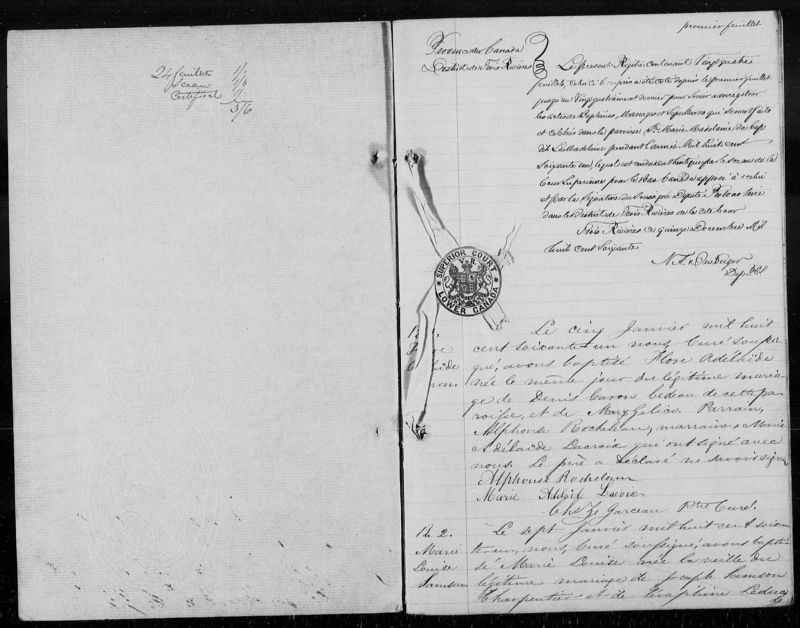 24 feuillets 1/1
Sceau 1/6
Certificat 1/.
5/6
premier feuillet
Province du Canada
District de Trois Rivières
Le présent Registre contenant Vingt quatre
feuillets, celui-ci compris a été coté depuis le premier feuillet
jusqu'au Vingt quatrième et dernier pour servir à enregistrer
les actes de Baptêmes, Mariages et Sépultures qui seront faits
et célébrés dans la paroisse Ste Marie Madeleine du Cap
dit La Madeleine pendant l'année Mil huit cent
soixante un, lequel est authentiqué par le sceau de la
Cour Supérieure pour le Bas Canada apposé à celui
et par la signature du Soussigné Député Protonotaire
dans le District de Trois Rivières de la dite Cour
Trois Rivières ce quinze Décembre Mil
huit cent soixante
Dep P.C.S.
SUPERIOR COURT
LOWER CANADA
Le cinq Janvier mil huit
cent soixante et un nous, Curé soussi-
gné, avons baptisé Flore Adélaïde
née le même jour du légitime maria-
ge de Denis Caron bedeau de cette pa-
roisse, et de Mary Perrain,
Alphonse Rocheleau, marraine Marie
Adélaïde Lacroix qui ont signé avec
nous. Le père a déclaré ne savoir signer
Alphonse Rocheleau
Marie Lacroix
Chs Z. Garceau Ptre Curé.
B. 2.
Marie
Louise
Samson
Le sept Janvier mil huit cent soixan-
te-un, nous, Curé soussigné, avons bapti-
sé Marie Louise née la veille du
légitime mariage de Joseph Samson
Charpentier et de Séraphine Leduc
de